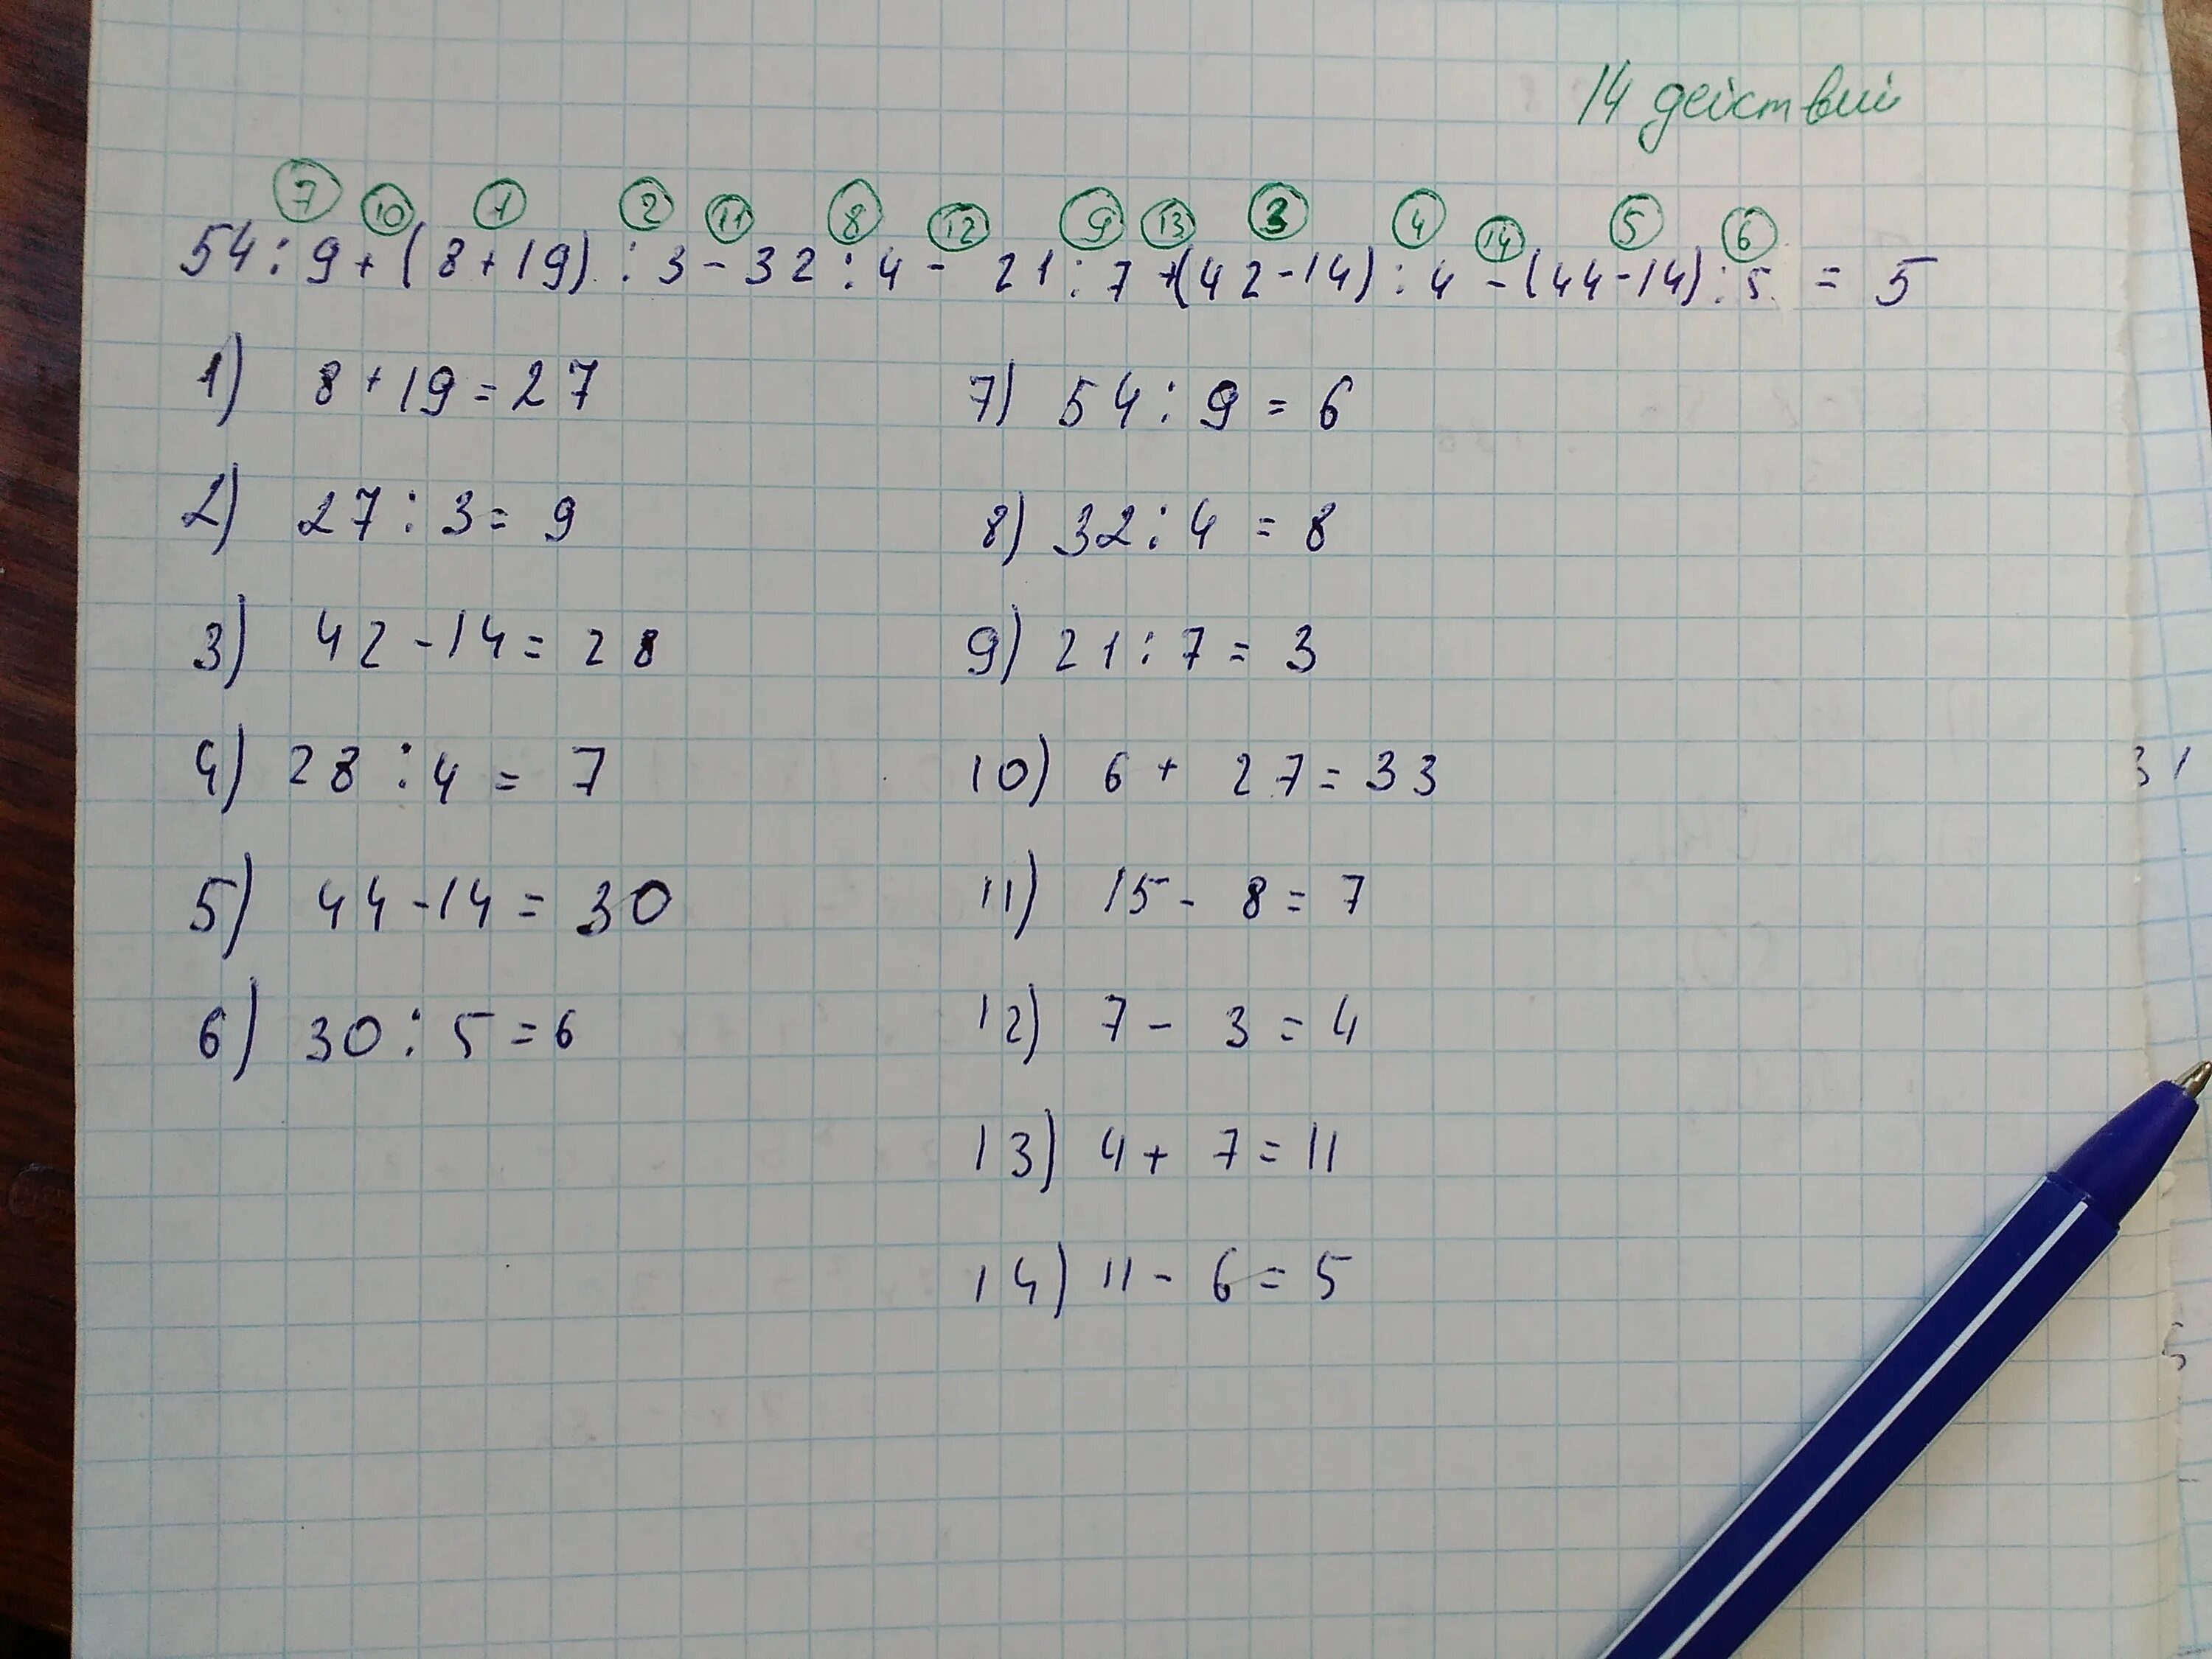 14 действий
7 10 1 2 11 8 12 9 13 3 4 14 5 6
54 : 9 + (8 + 19) : 3 - 32 : 4 - 21 : 7 + (42 - 14) : 4 - (44 - 14) : 5 = 5
1) 8 + 19 = 27
2) 27 : 3 = 9
3) 42 - 14 = 28
4) 28 : 4 = 7
5) 44 - 14 = 30
6) 30 : 5 = 6
7) 54 : 9 = 6
8) 32 : 4 = 8
9) 21 : 7 = 3
10) 6 + 27 = 33
11) 15 - 8 = 7
12) 7 - 3 = 4
13) 4 + 7 = 11
14) 11 - 6 = 5
31
5